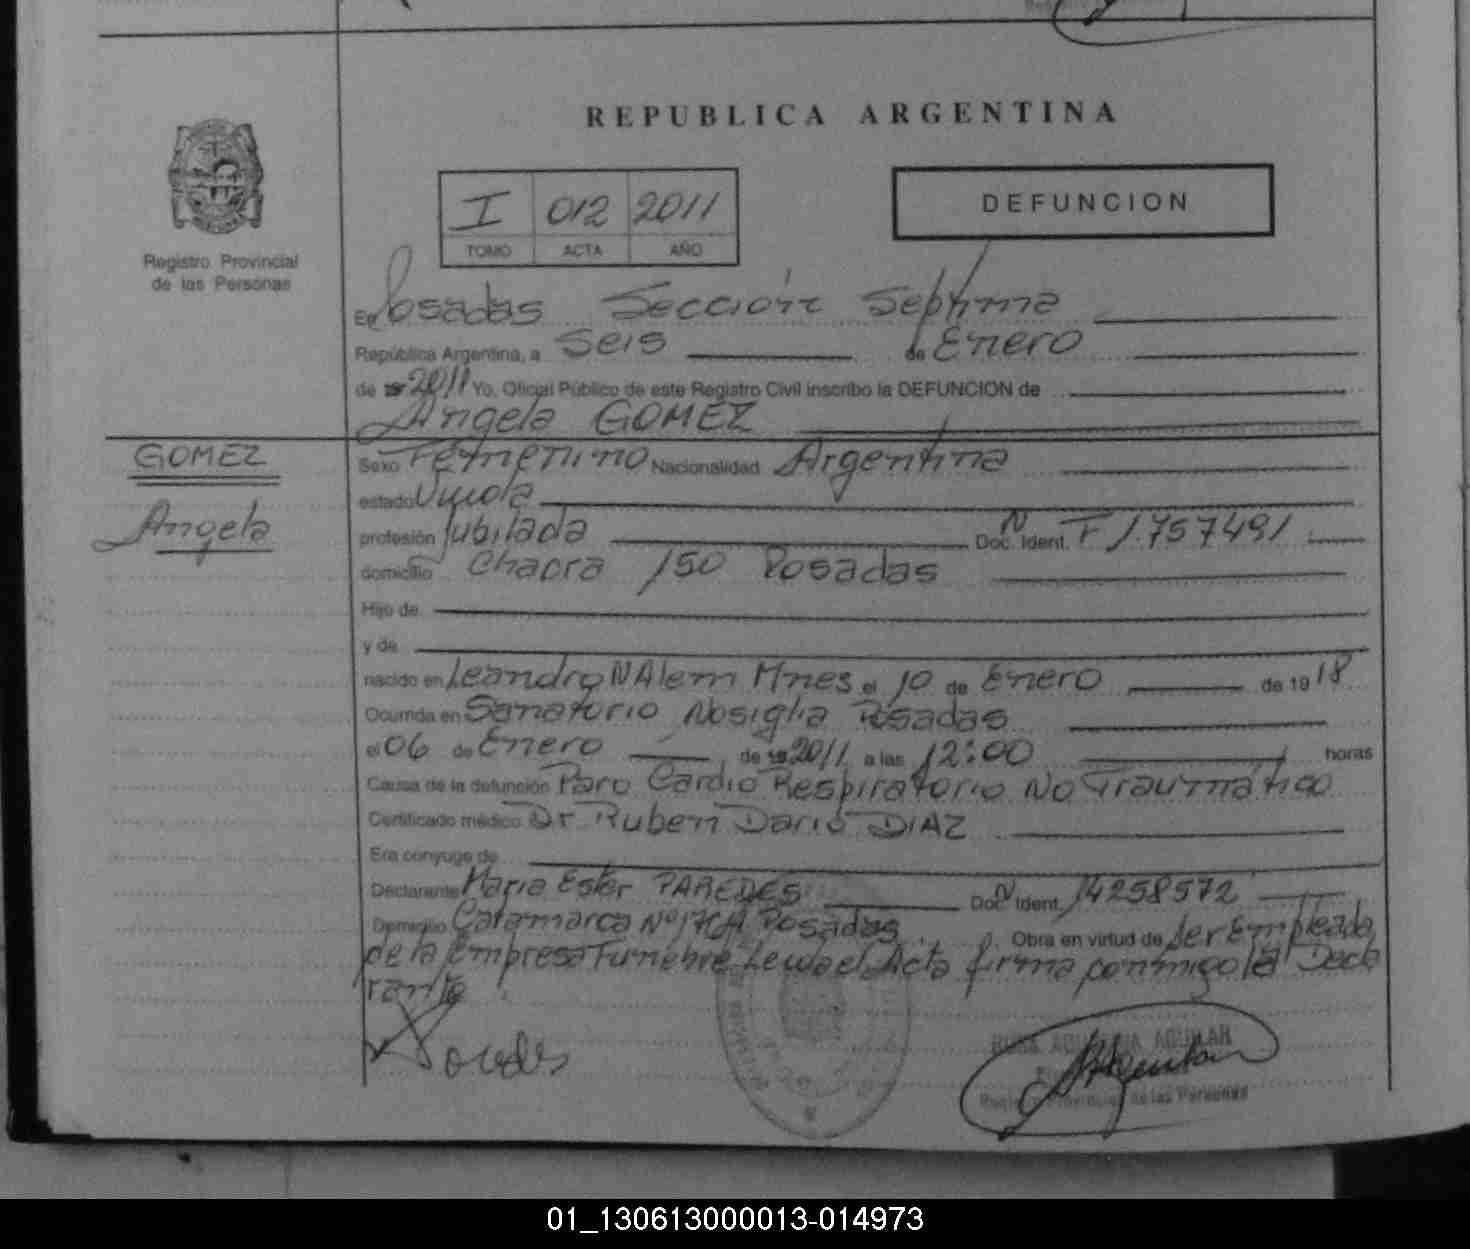 REPUBLICA ARGENTINA
I 012 2011
TOMO ACTA AÑO
DEFUNCION
Registro Provincial
de las Personas
En Posadas Sección Septima
República Argentina, a Seis de Enero
de 2011 Yo, Oficial Público de este Registro Civil inscribo la DEFUNCION de
Angela GOMEZ
GOMEZ
Angela
Sexo Femenino Nacionalidad Argentina
estado Viuda
profesión Jubilada Doc. N Ident. F 1.757491
domicilio Chacra 150 Posadas
Hijo de
y de
nacido en Leandro N Alem Mnes el 10 de Enero de 1918
Ocurrida en Sanatorio Nosiglia Posadas
el 06 de Enero de 2011 a las 12:00 horas
Causa de la defunción Paro Cardio Respiratorio No Traumático
Certificado médico Dr Ruben Dario DIAZ
Era conyuge de
Declarante Maria Ester PAREDES Doc. N Ident. 14258572
Domicilio Catamarca Nº Posadas Obra en virtud de ser Empleada
de la Empresa Funebre Leida el Acta firma conmigo la Decla
rante
AGUILAR
Registro Provincial de las Personas
01_130613000013-014973